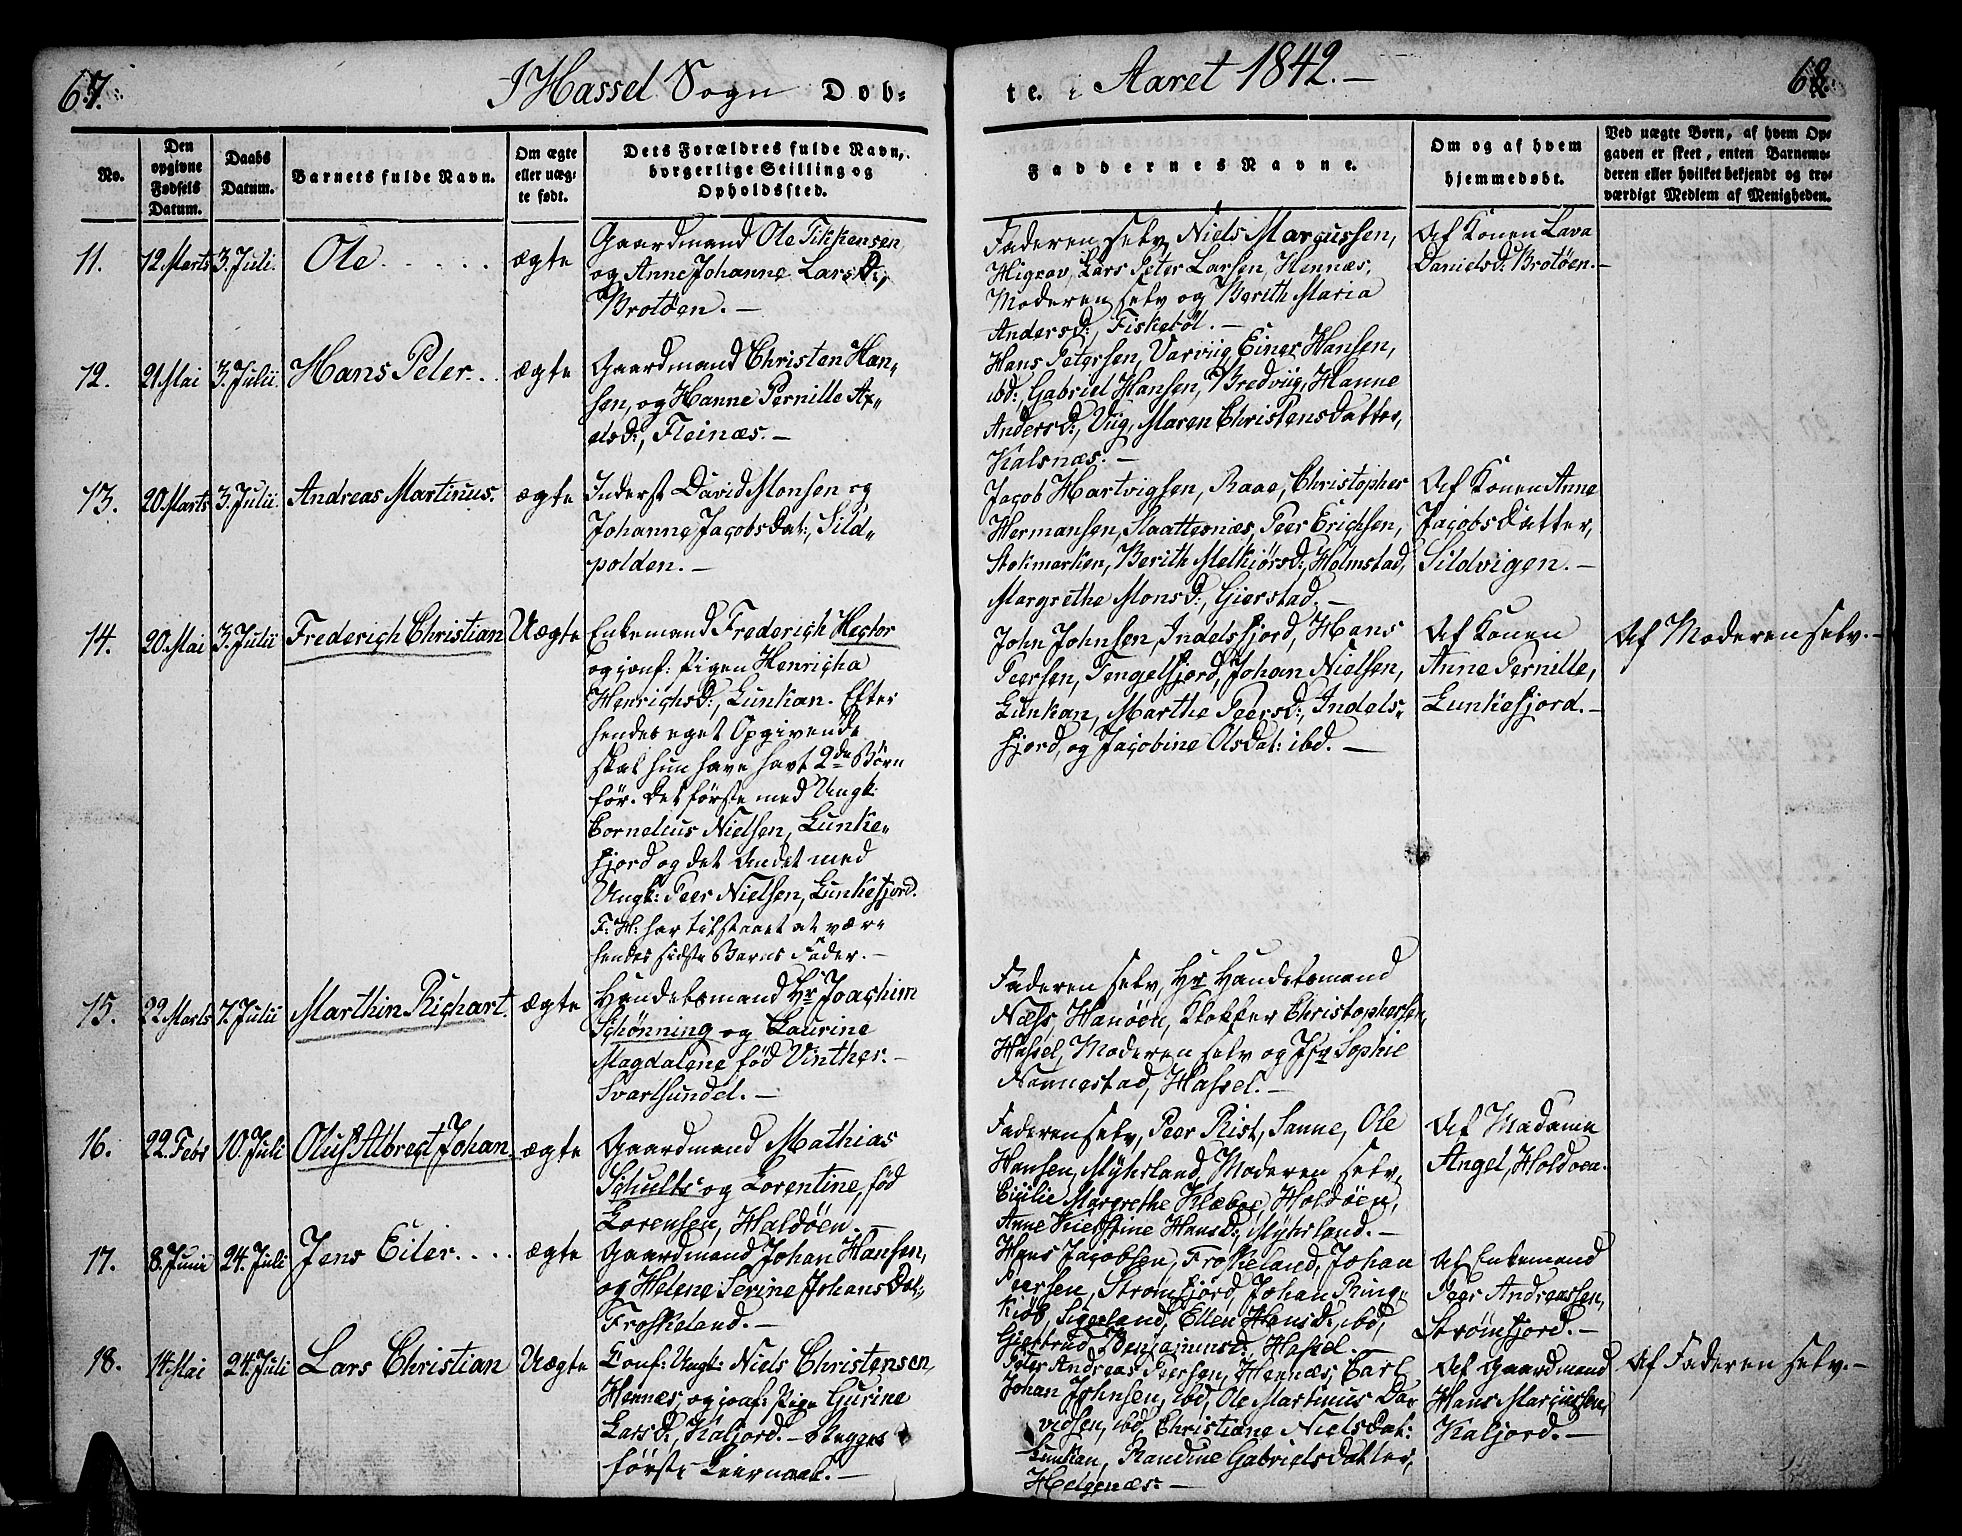 67.
I Hassel Sogn Døb-
te i Aaret 1842.-
68.
No.
Den
opgivne
Fødsels
Datum.
Daabs
Datum.
Barnets fulde Navn.
Om ægte
eller uæg-
te født.
Dets Forældres fulde Navn,
borgerlige Stilling og
Opholdssted.
Faddernes Navne.
Om og af hvem
hjemmedøbt.
Ved uægte Børn, af hvem Op-
gaven er skeet, enten Barnemo-
deren eller hvilket bekjendt og tro-
værdigt Medlem af Menigheden.
11.
12. Marts
3. Juli.
Ole
ægte
Gaardmand Ole Tikkensen
og Anne Johanne Larsd:,
Brotøen.-
Faderen selv, Niels Marcussen,
Higrav, Lars Peter Larsen, Hennæs,
Moderen selv og Berith Maria
Andersd:, Fiskebøl.-
Af Konen Lava
Danielsd: Brotøen.-
12.
21 Mai
3. Julii
Hans Peter
ægte
Gaardmand Christen Han-
sen, og Hanne Pernille Ax-
elsd:, Fleinæs.-
Hans Petersen, Varviig, Einer Hansen,
ibd:, Gabriel Hansen, Bredviig, Hanne
Andersd:, Viig, Maren Christensdatter,
Kalsnæs.-
13.
20. Marts
3. Julii
Andreas Martinus.
ægte
Inderst David Monsen og
Johanne Jacobsdat:, Sild-
polden.-
Jacob Hartvigsen, Raae, Christopher
Hermansen, Slaattesnæs, Peer Erichsen,
Stokmarken, Berith Melkiørsd:, Holmstad,
Margrethe Monsd:, Gierstad.-
Af Konen Anne
Jacobsdatter,
Sildvigen.-
14.
20. Mai
3. Julii
Frederich Christian
Uægte
Enkemand Frederich Hector
og conf: Pigen Henricha
Henrichsd:, Lunkan. Efter
hendes eget Opgivende
skal hun have havt 2de Børn
før. Det første med Ungk:
Cornelius Nielsen, Lunke-
fjord og det Andet med
Ungk: Peer Nielsen, Lunkefjord.
F: H: har tilstaaet at være
hendes sidste Barns Fader.-
John Johnsen, Indelsfjord, Hans
Peersen, Tengelfjord, Johan Nielsen,
Lunkan, Marthe Peersd:, Indels-
fjord, og Jacobine Olsdat: ibd.-
Af Konen
Anne Pernille,
Lunkefjord.-
Af Moderen selv.-
15.
22 Marts
7. Julii
Marthin Richart.
ægte
Handelsmand Hr Joachim
Schønning og Laurine
Magdalene fød Vinther.-
Svartsundet.-
Faderen selv, Hr Handelsmand
Næss, Hanøen, Klokker Christophersen,
Hassel, Moderen selv og Jfr Sophie
Nannestad, Hassel.-
16.
22 Febr
10. Juli
Oluf Albrect Johan
ægte
Gaardmand Mathias
Schults og Lorentine, fød
Lorensen, Haldøen.-
Faderen selv, Peer Rist, Sanne, Ole
Hansen, Myhrland, Moderen selv,
Cicilie Margrethe Klæboe, Holdøen,
Anne Kierstine Hansd:, Myhrland.-
Af Madame
Angel, Holdøen.
17.
8. Junii
24. Juli
Jens Eiler
ægte
Gaardmand Johan Hansen,
og Helene Serine Johansdat:
Froskeland.-
Hans Jacobsen, Froskeland, Johan
Peersen, Strømfjord, Johan Ring-
kiøb, Sigerland, Ellen Hansd:, ibd,
Giertrud Benjaminsd:, Hassel.-
Af Enkemand
Peer Andreassen,
Strømfjord.-
18.
14 Mai
24. Juli
Lars Christian
Uægte
Conf: Ungk: Niels Christensen,
Hennæs, og conf: Pige Gurine
Larsd:, Kaljord.- Begges
første Leiermaal.-
Peter Andreas Peersen, Hennæs, Carl
Johan Johnsen, ibd, Ole Martinus Da-
vidsen, ibd, Christiane Nielsdat:
Lunkan, Randine Gabrielsdatter,
Helgenæs.-
Af Gaardmand
Hans Marcussen,
Kaljord.-
Af Faderen selv.-